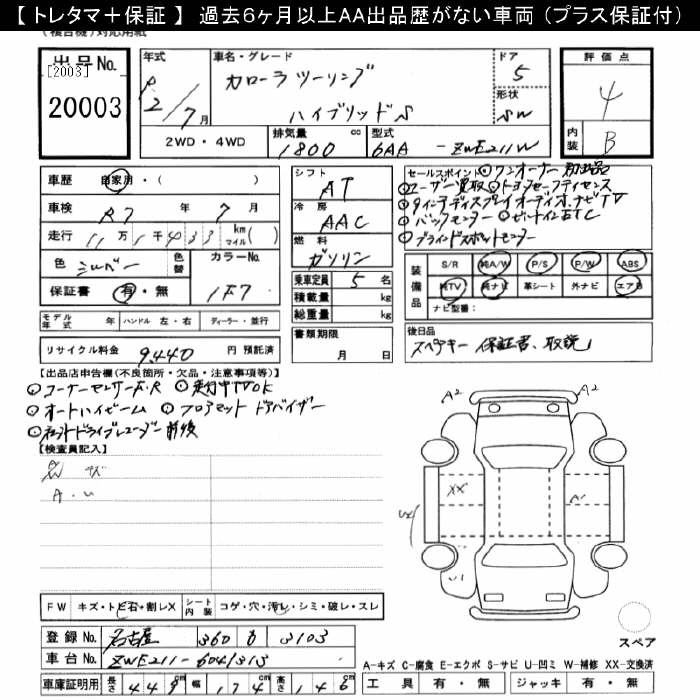 【 トレタマ＋保証 】 過去６ヶ月以上ＡＡ出品歴がない車両 （プラス保証付）
(複合機)対応用紙
出品No.
[2003]
20003
年式
R2/7月
車名・グレード
カローラツーリング
ハイブリッドS
ドア
5
形状
SW
評価点
4
内装
B
2WD・4WD
排気量
1800 cc
型式
6AA - ZWE211W
車歴 自家用・( )
車検 R7 年 7 月
走行 11万1千433 km マイル( )
色 シルバー
色替
カラーNo.
1F7
保証書 有・無
シフト
AT
冷房
AAC
燃料
ガソリン
乗車定員 5 名
積載量 kg
総重量 kg
セールスポイント ワンオーナー
ユーザー買取 トヨタセーフティセンス
ディスプレイオーディオ.ナビTV
バックモニター ビルトインETC
ブラインドスポットモニター
装備品
S/R 純A/W P/S P/W ABS
純TV 純ナビ 革シート 外ナビ エアB
ナビ型番:
モデル年式 年
ハンドル 左・右
ディーラー・並行
リサイクル料金 9,440 円 預託済
書類期限
月 日
後日品
スペアキー 保証書、取説
【出品店申告欄(不良箇所・欠品・注意事項等)】
コーナーセンサーF.R 走行中TVOK
オートハイビーム フロアマット ドアバイザー
ドライブレコーダー前後
【検査員記入】
キズ
A.U
A2
A2
XX
A1
U1
FW キズ・トビ石+割レX
シート内装 コゲ・穴・汚レ・シミ・破レ・スレ
登録No. 名古屋 360 る 3103
車台No. ZWE211-6041313
車庫証明用 長さ 449cm 幅 174cm 高さ 146cm
スペア
A-キズ C-腐食 E-エクボ S-サビ U-凹ミ W-補修 XX-交換済
工具 有・無 ジャッキ 有・無